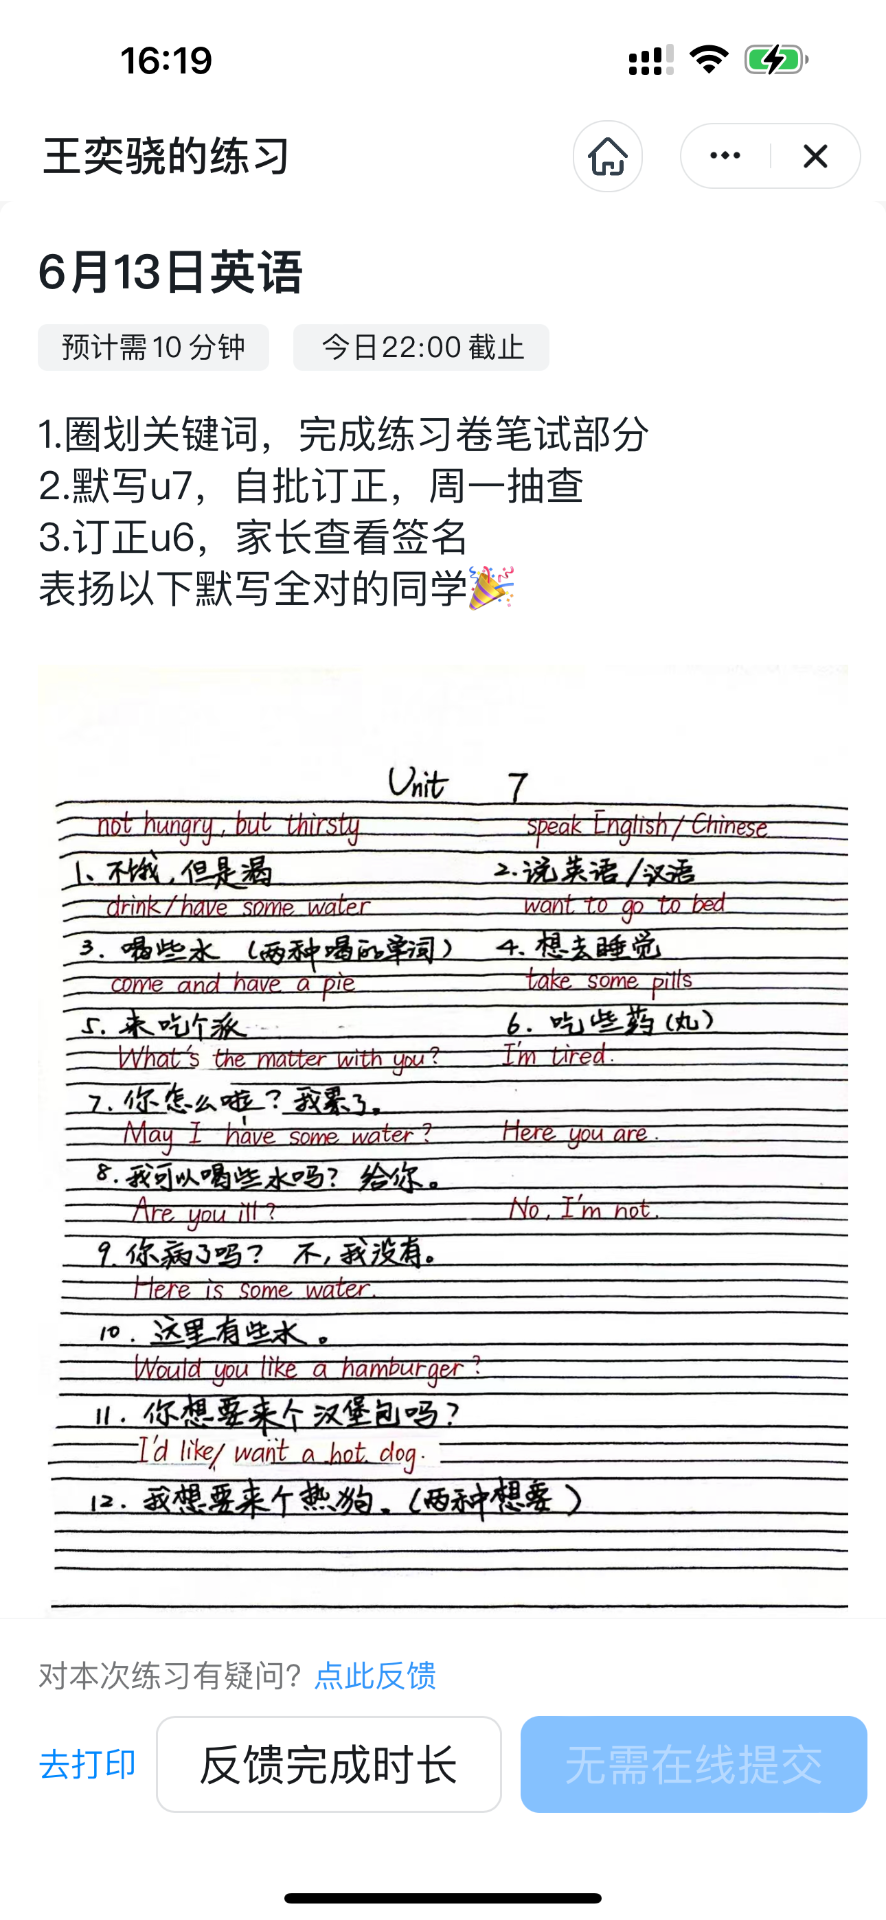 16:19
王奕骁的练习
6月13日英语
预计需10 分钟 今日22:00 截止
1.圈划关键词，完成练习卷笔试部分
2.默写u7，自批订正，周一抽查
3.订正u6，家长查看签名
表扬以下默写全对的同学🎉
Unit 7
not hungry, but thirsty speak English / Chinese
1、不饿，但是渴 2.说英语/汉语
drink / have some water want to go to bed
3. 喝些水（两种喝的单词） 4. 想去睡觉
come and have a pie take some pills
5. 来吃个派 6. 吃些药（丸）
What's the matter with you? I'm tired.
7. 你怎么啦？我累了。
May I have some water? Here you are.
8. 我可以喝些水吗？ 给你。
Are you ill? No, I'm not.
9. 你病了吗？ 不，我没有。
Here is some water.
10. 这里有些水。
Would you like a hamburger?
11. 你想要来个汉堡包吗？
I'd like/ want a hot dog.
12. 我想要来个热狗。（两种想要）
对本次练习有疑问？点此反馈
去打印 反馈完成时长 无需在线提交